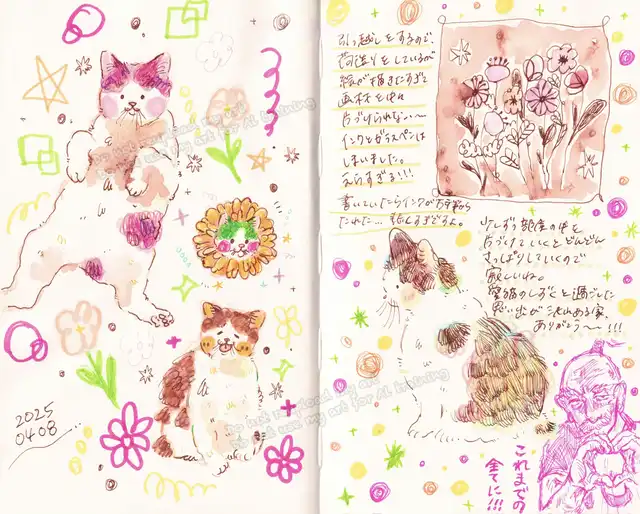 2025
04 08
引っ越しをするので、
荷造りをしているが
絵が描きたすぎて
画材をほぼ
片づけられない〜
インクとガラスペンは
しまいました。
えらすぎる!!!
書いていたらインクが万年筆から
たれた…
少しずつ部屋の中を
片づけていくとどんどん
さっぱりしていくので
寂しいね。
愛猫のしずくと過ごした
思い出がこもれる家、
ありがとう〜!!!
これまでの
全てに!!!
Do not reupload my art
Do not use my art for AI training
Do not reupload my art
Do not use my art for AI training